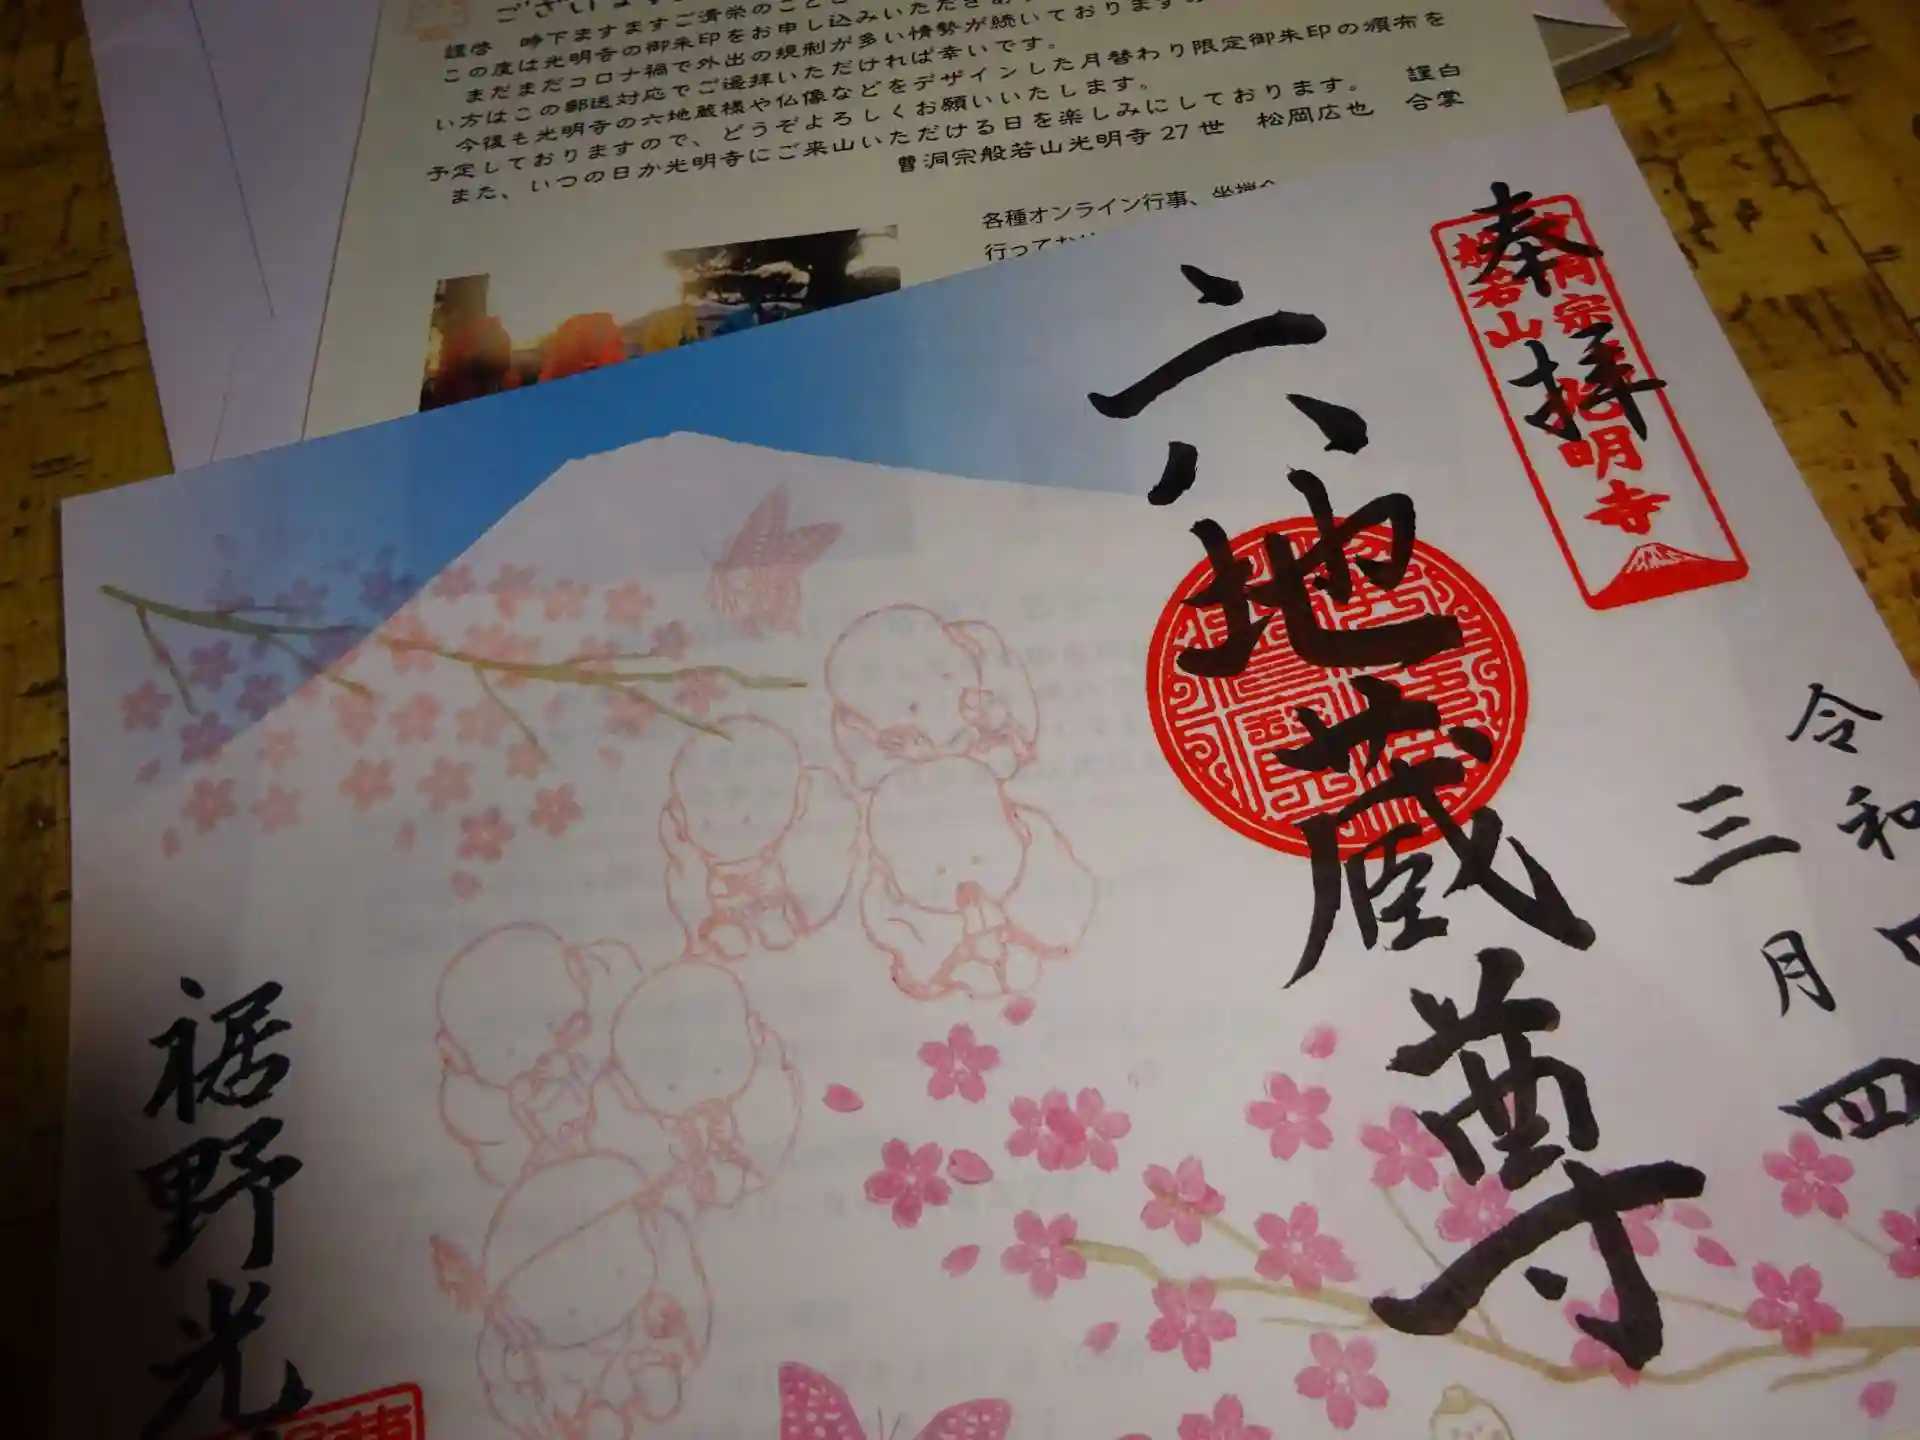 謹啓 時下ますますご清栄のことと
この度は光明寺の御朱印をお申し込みいただき
まだまだコロナ禍で外出の規制が多い情勢が続いておりますの
い方はこの郵送対応でご遥拝いただければ幸いです。
今後も光明寺の六地蔵様や仏像などをデザインした月替わり限定御朱印の頒布を
予定しておりますので、どうぞよろしくお願いいたします。
また、いつの日か光明寺にご来山いただける日を楽しみにしております。 謹白
曹洞宗般若山光明寺27世 松岡広也 合掌
各種オンライン行事、坐禅会
行って
奉拝
洞宗
般若山
光明寺
六地蔵尊
令和四
三月四
裾野光